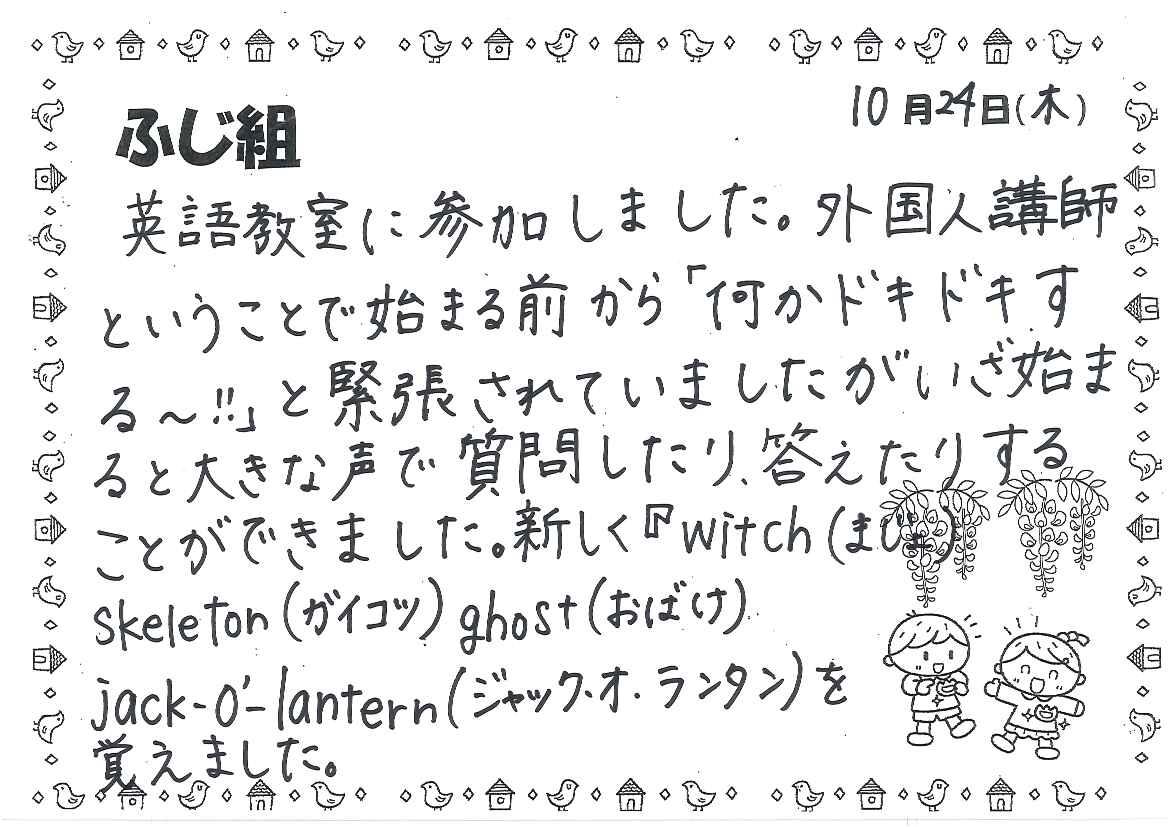 10月24日(木)
ふじ組
英語教室に参加しました。外国人講師
ということで始まる前から「何かドキドキす
る～!!」と緊張されていましたがいざ始ま
ると大きな声で質問したり、答えたりする
ことができました。新しく『witch(まじょ)
skeleton(ガイコツ)ghost(おばけ)
jack-o'-lantern(ジャック・オ・ランタン)を
覚えました。